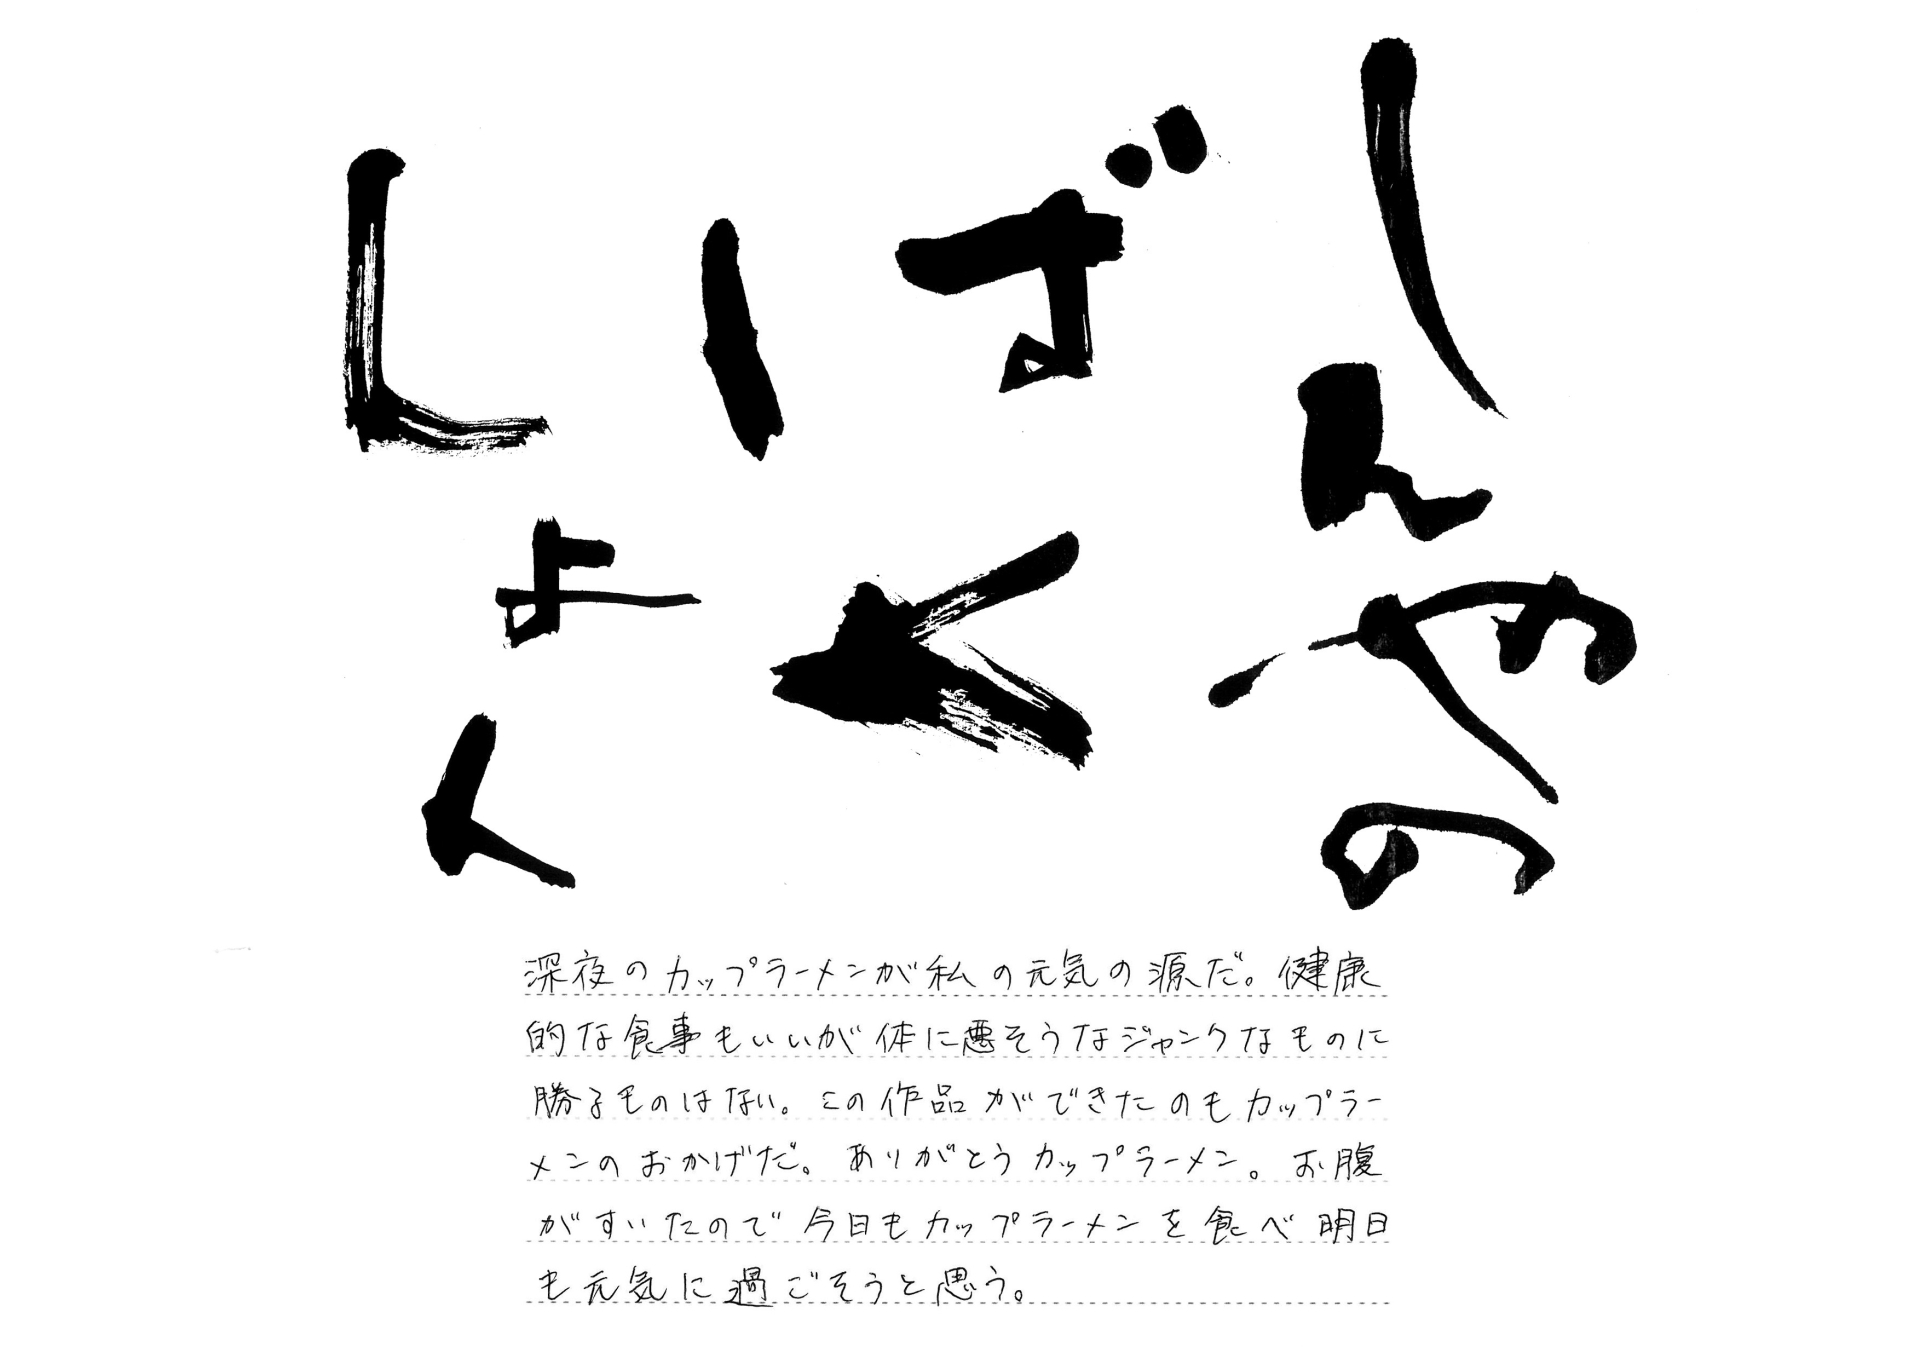 しんやの
ばく
しょく
深夜のカップラーメンが私の元気の源だ。健康
的な食事もいいが体に悪そうなジャンクなものに
勝るものはない。この作品ができたのもカップラー
メンのおかげだ。ありがとうカップラーメン。お腹
がすいたので今日もカップラーメンを食べ明日
も元気に過ごそうと思う。